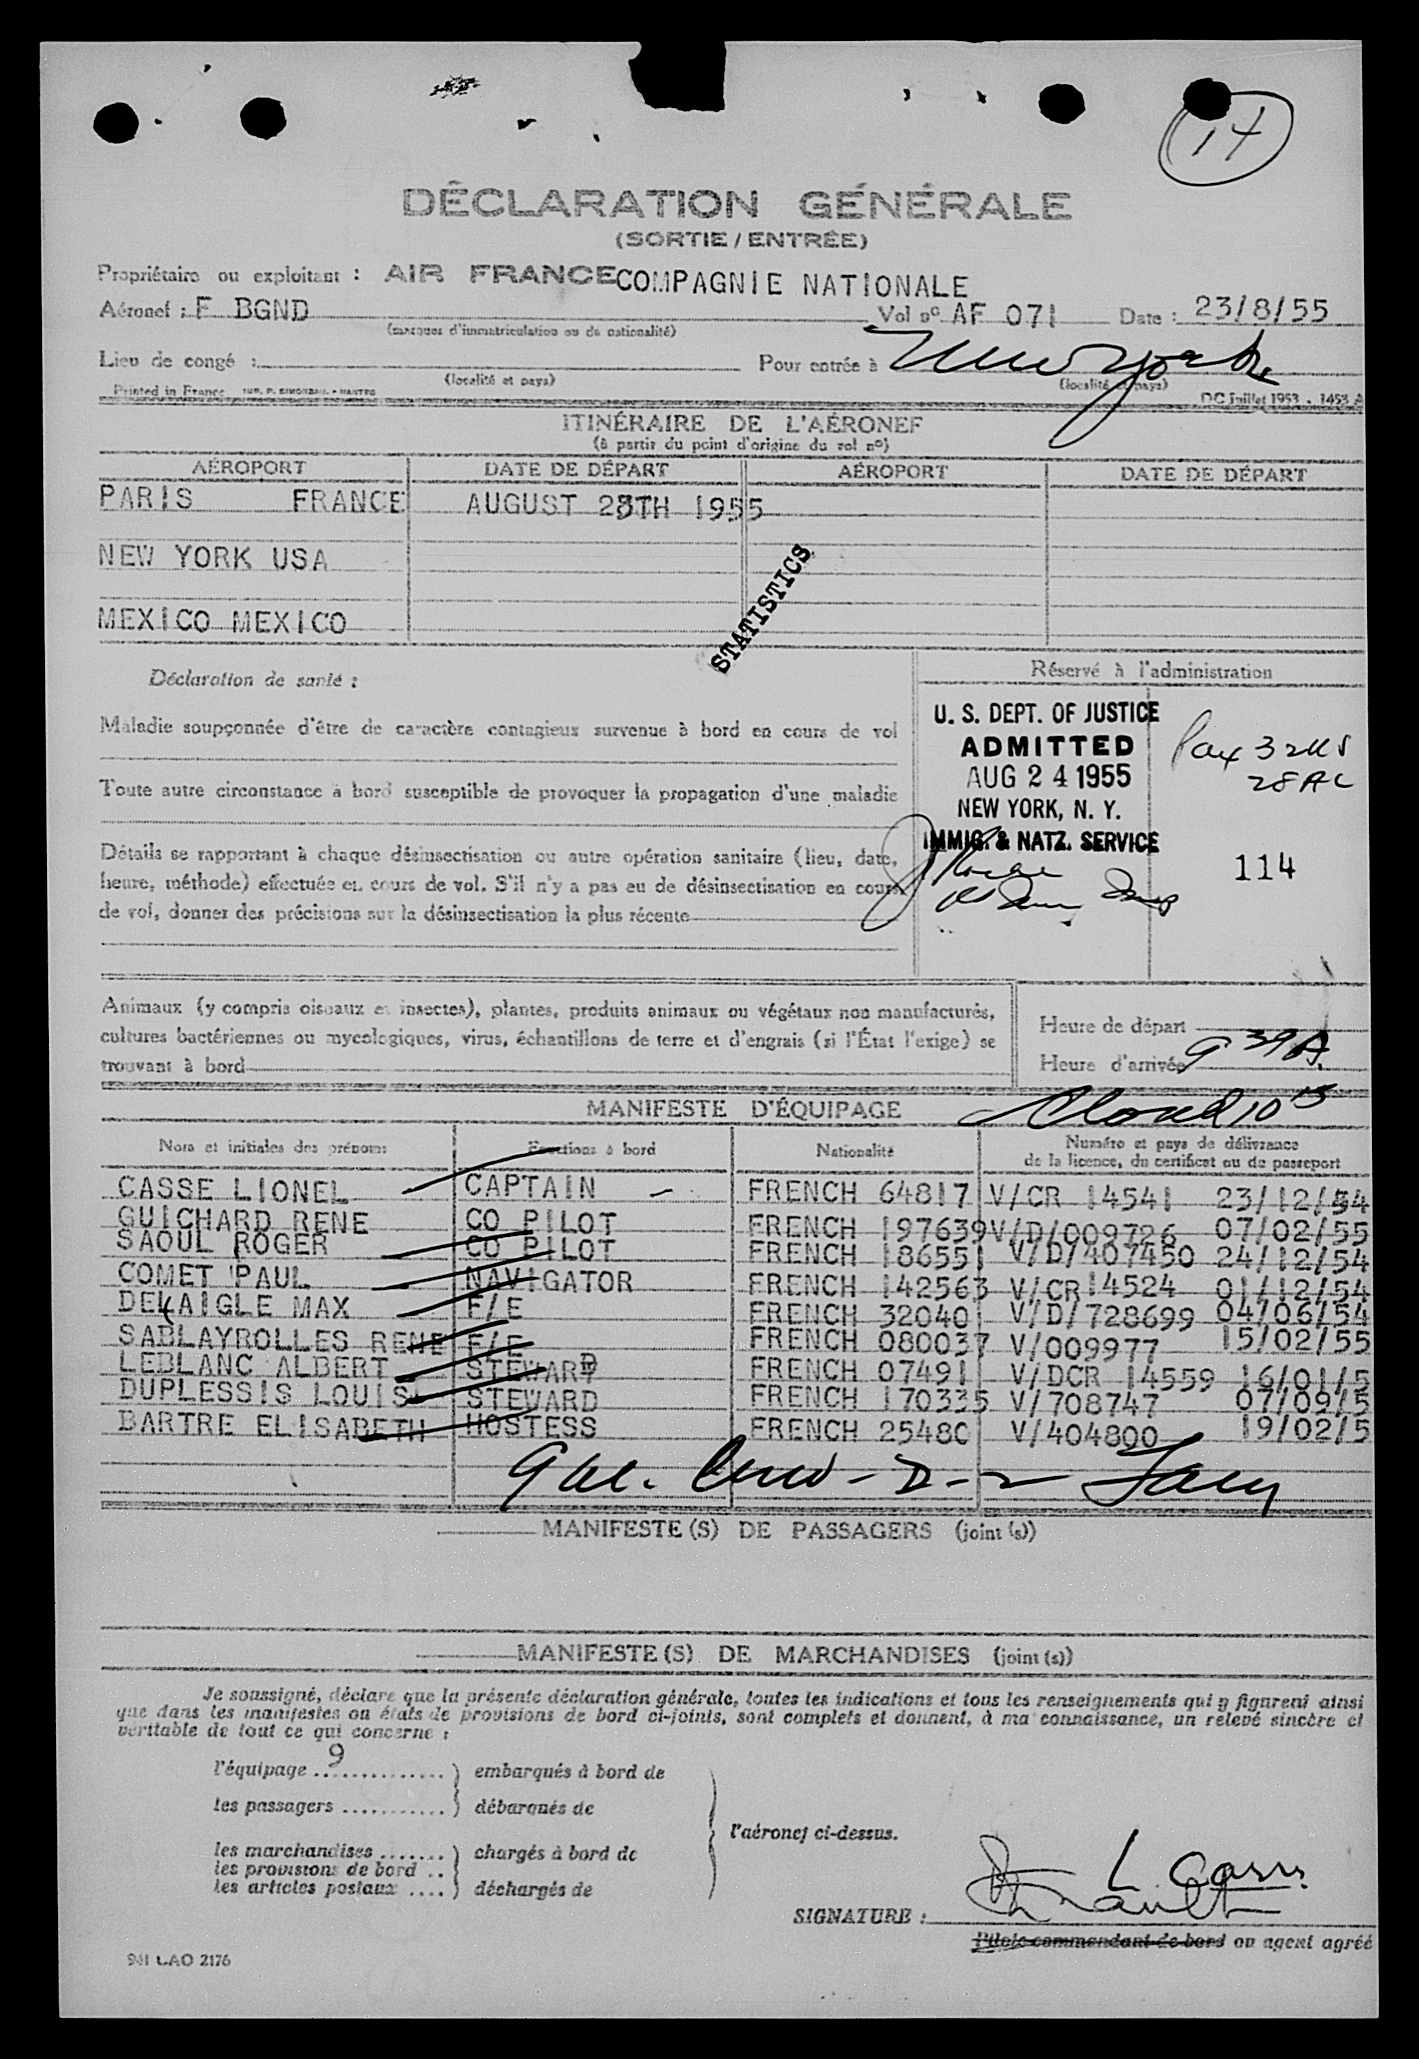 14
DÉCLARATION GÉNÉRALE
(SORTIE / ENTRÉE)
Propriétaire ou exploitant : AIR FRANCE COMPAGNIE NATIONALE
Aéronef : F BGND Vol nº AF 071 Date : 23/8/55
(marques d'immatriculation ou de nationalité)
Lieu de congé : Pour entrée à New York
(localité et pays) (localité et pays)
Printed in France DC juillet 1953 . 1453 A
ITINÉRAIRE DE L'AÉRONEF
(à partir du point d'origine du vol nº)
AÉROPORT DATE DE DÉPART AÉROPORT DATE DE DÉPART
PARIS FRANCE AUGUST 23TH 1955
NEW YORK USA
MEXICO MEXICO
STATISTICS
Déclaration de santé :
Réservé à l'administration
Maladie soupçonnée d'être de caractère contagieux survenue à bord en cours de vol
Toute autre circonstance à bord susceptible de provoquer la propagation d'une maladie
Détails se rapportant à chaque désinsectisation ou autre opération sanitaire (lieu, date,
heure, méthode) effectuée en cours de vol. S'il n'y a pas eu de désinsectisation en cours
de vol, donner des précisions sur la désinsectisation la plus récente
U. S. DEPT. OF JUSTICE
ADMITTED
AUG 24 1955
NEW YORK, N. Y.
IMMIG. & NATZ. SERVICE
Pax 32 US
28 AL
114
Animaux (y compris oiseaux et insectes), plantes, produits animaux ou végétaux non manufacturés,
cultures bactériennes ou mycologiques, virus, échantillons de terre et d'engrais (si l'État l'exige) se
trouvant à bord
Heure de départ
Heure d'arrivée 9 39 A.
MANIFESTE D'ÉQUIPAGE
10 15
Nom et initiales des prénoms Fonctions à bord Nationalité Numéro et pays de délivrance
de la licence, du certificat ou du passeport
CASSE LIONEL CAPTAIN FRENCH 64817 V/CR 14541 23/12/54
GUICHARD RENE CO PILOT FRENCH 197639 V/D/009726 07/02/55
SAOUL ROGER CO PILOT FRENCH 186551 V/D/407450 24/12/54
COMET PAUL NAVIGATOR FRENCH 142563 V/CR 14524 01/12/54
DELAIGLE MAX F/E FRENCH 32040 V/D/728699 04/06/54
SABLAYROLLES RENE F/E FRENCH 080037 V/009977 15/02/55
LEBLANC ALBERT STEWARD FRENCH 07491 V/DCR 14559 16/01/5
DUPLESSIS LOUIS STEWARD FRENCH 170335 V/708747 07/09/5
BARTRE ELISABETH HOSTESS FRENCH 25480 V/404800 19/02/5
MANIFESTE(S) DE PASSAGERS (joint (s))
MANIFESTE(S) DE MARCHANDISES (joint (s))
Je soussigné, déclare que la présente déclaration générale, toutes les indications et tous les renseignements qui y figurent ainsi
que dans les manifestes ou états de provisions de bord ci-joints, sont complets et donnent, à ma connaissance, un relevé sincère et
véritable de tout ce qui concerne :
l'équipage 9 ) embarqués à bord de
les passagers ........... ) débarqués de
l'aéronef ci-dessus.
les marchandises ....... ) chargés à bord de
les provisions de bord ..
les articles postaux .... ) déchargés de
SIGNATURE :
Pilote commandant de bord ou agent agréé
941 CAO 2176